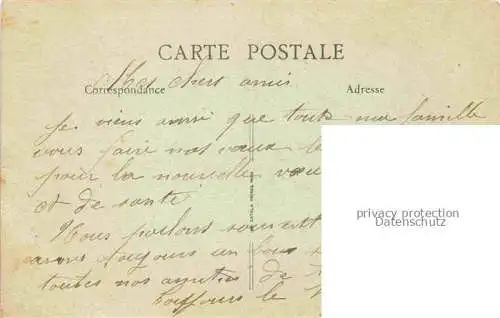 CARTE POSTALE
Mes chers amis
Correspondance
Adresse
Je viens ainsi que toute ma famille
vous faire nos vœux
pour la nouvelle
et de santé
Nous parlons souvent
toujours un bon
toutes nos amitiés de
Toujours le
privacy protection
Datenschutz